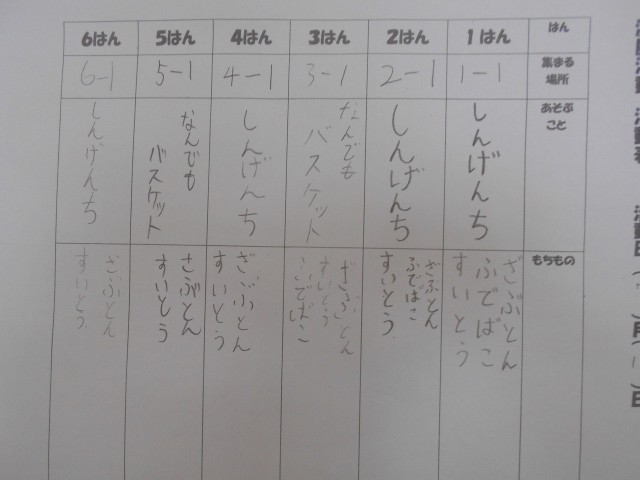 はん
1はん
2はん
3はん
4はん
5はん
6はん
集まる
場所
1-1
2-1
3-1
4-1
5-1
6-1
あそぶ
こと
しんげんち
しんげんち
なんでも
バスケット
しんげんち
なんでも
バスケット
しんげんち
もちもの
ざぶとん
ふでばこ
すいとう
ざぶとん
ふでばこ
すいとう
ざぶとん
すいとう
ふでばこ
ざぶとん
すいとう
さぶとん
すいとう
ざぶとん
すいとう